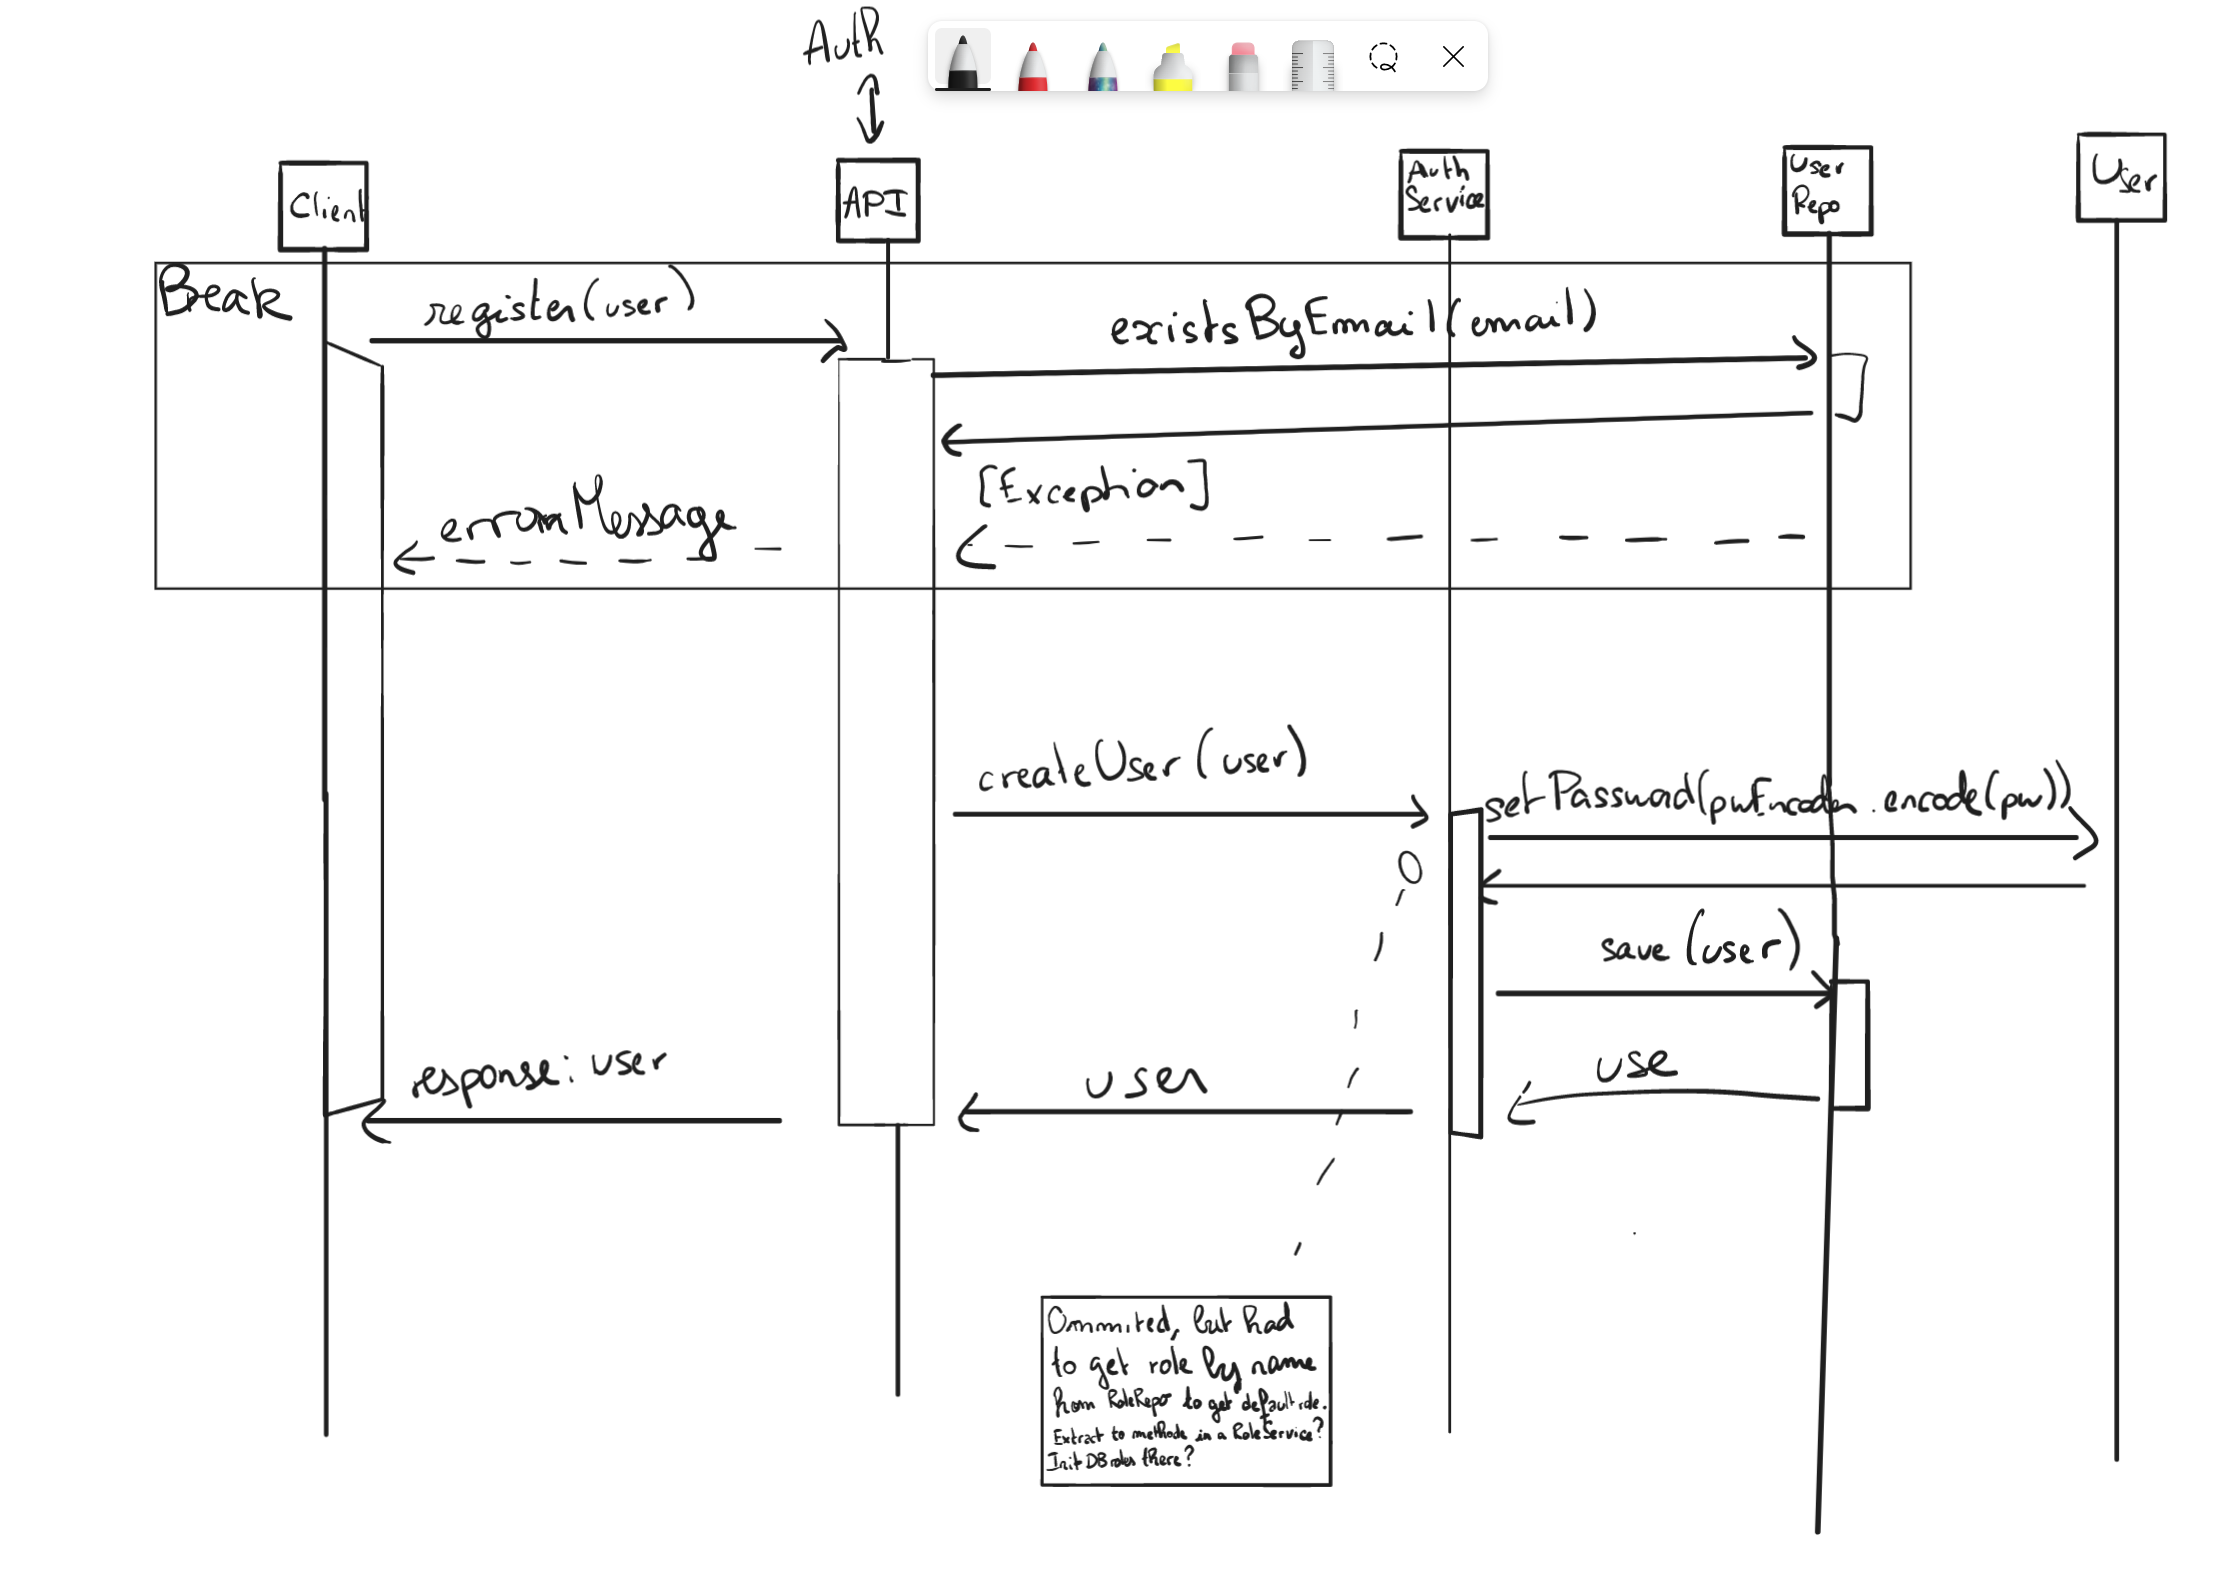 Auth
Client
API
Auth
Service
User
Repo
User
Beak
register(user)
existsByEmail(email)
[Exception]
errorMessage
createUser(user)
setPassword(pwEncoder.encode(pw))
save(user)
use
user
response: user
Ommited, but had
to get role by name
from RoleRepo to get default role.
Extract to methode in a RoleService?
Init DB roles there?